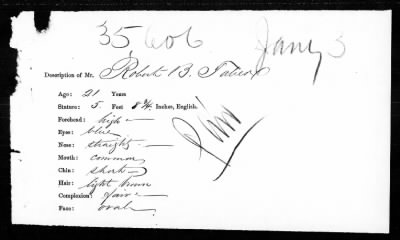 35606 Jany 3
Description of Mr. Robert B.
Age: 21 Years
Stature: 5 Feet 8 3/4 Inches, English.
Forehead: high
Eyes: blue
Nose: straight
Mouth: common
Chin: short
Hair: light brown
Complexion: fair
Face: oval